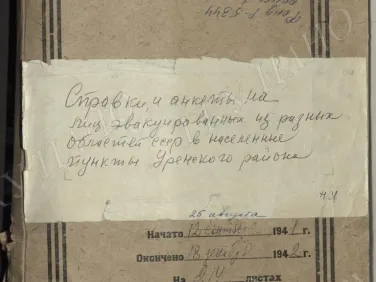 Фонд Р-5844
Справки и анкеты на
лиц эвакуированных из разных
областей СССР в населенные
пункты Уренского района
25 августа
Начато 1941 г.
Окончено 1942 г.
На листах